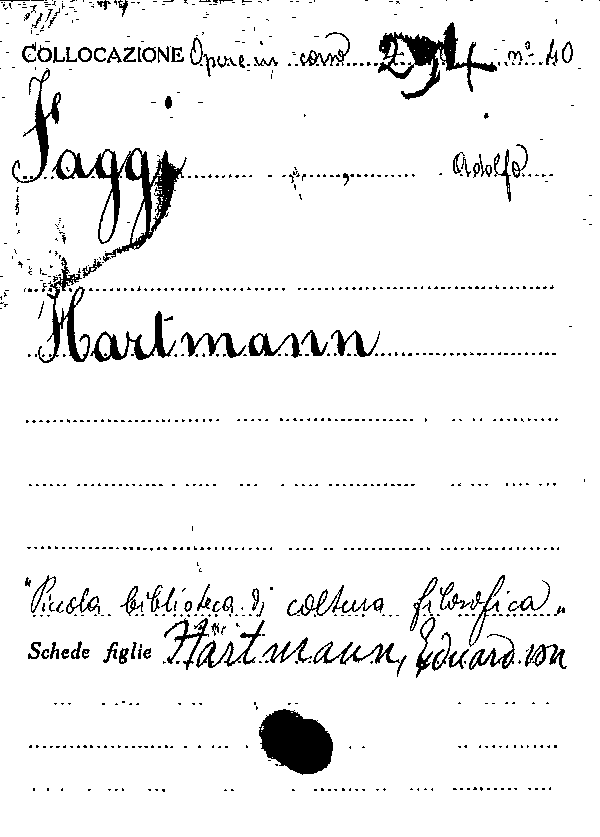 COLLOCAZIONE Opere in corso 294 n° 40
Faggi, Adolfo
Hartmann
"Piccola biblioteca di coltura filosofica"
Schede figlie Hartmann, Eduard von